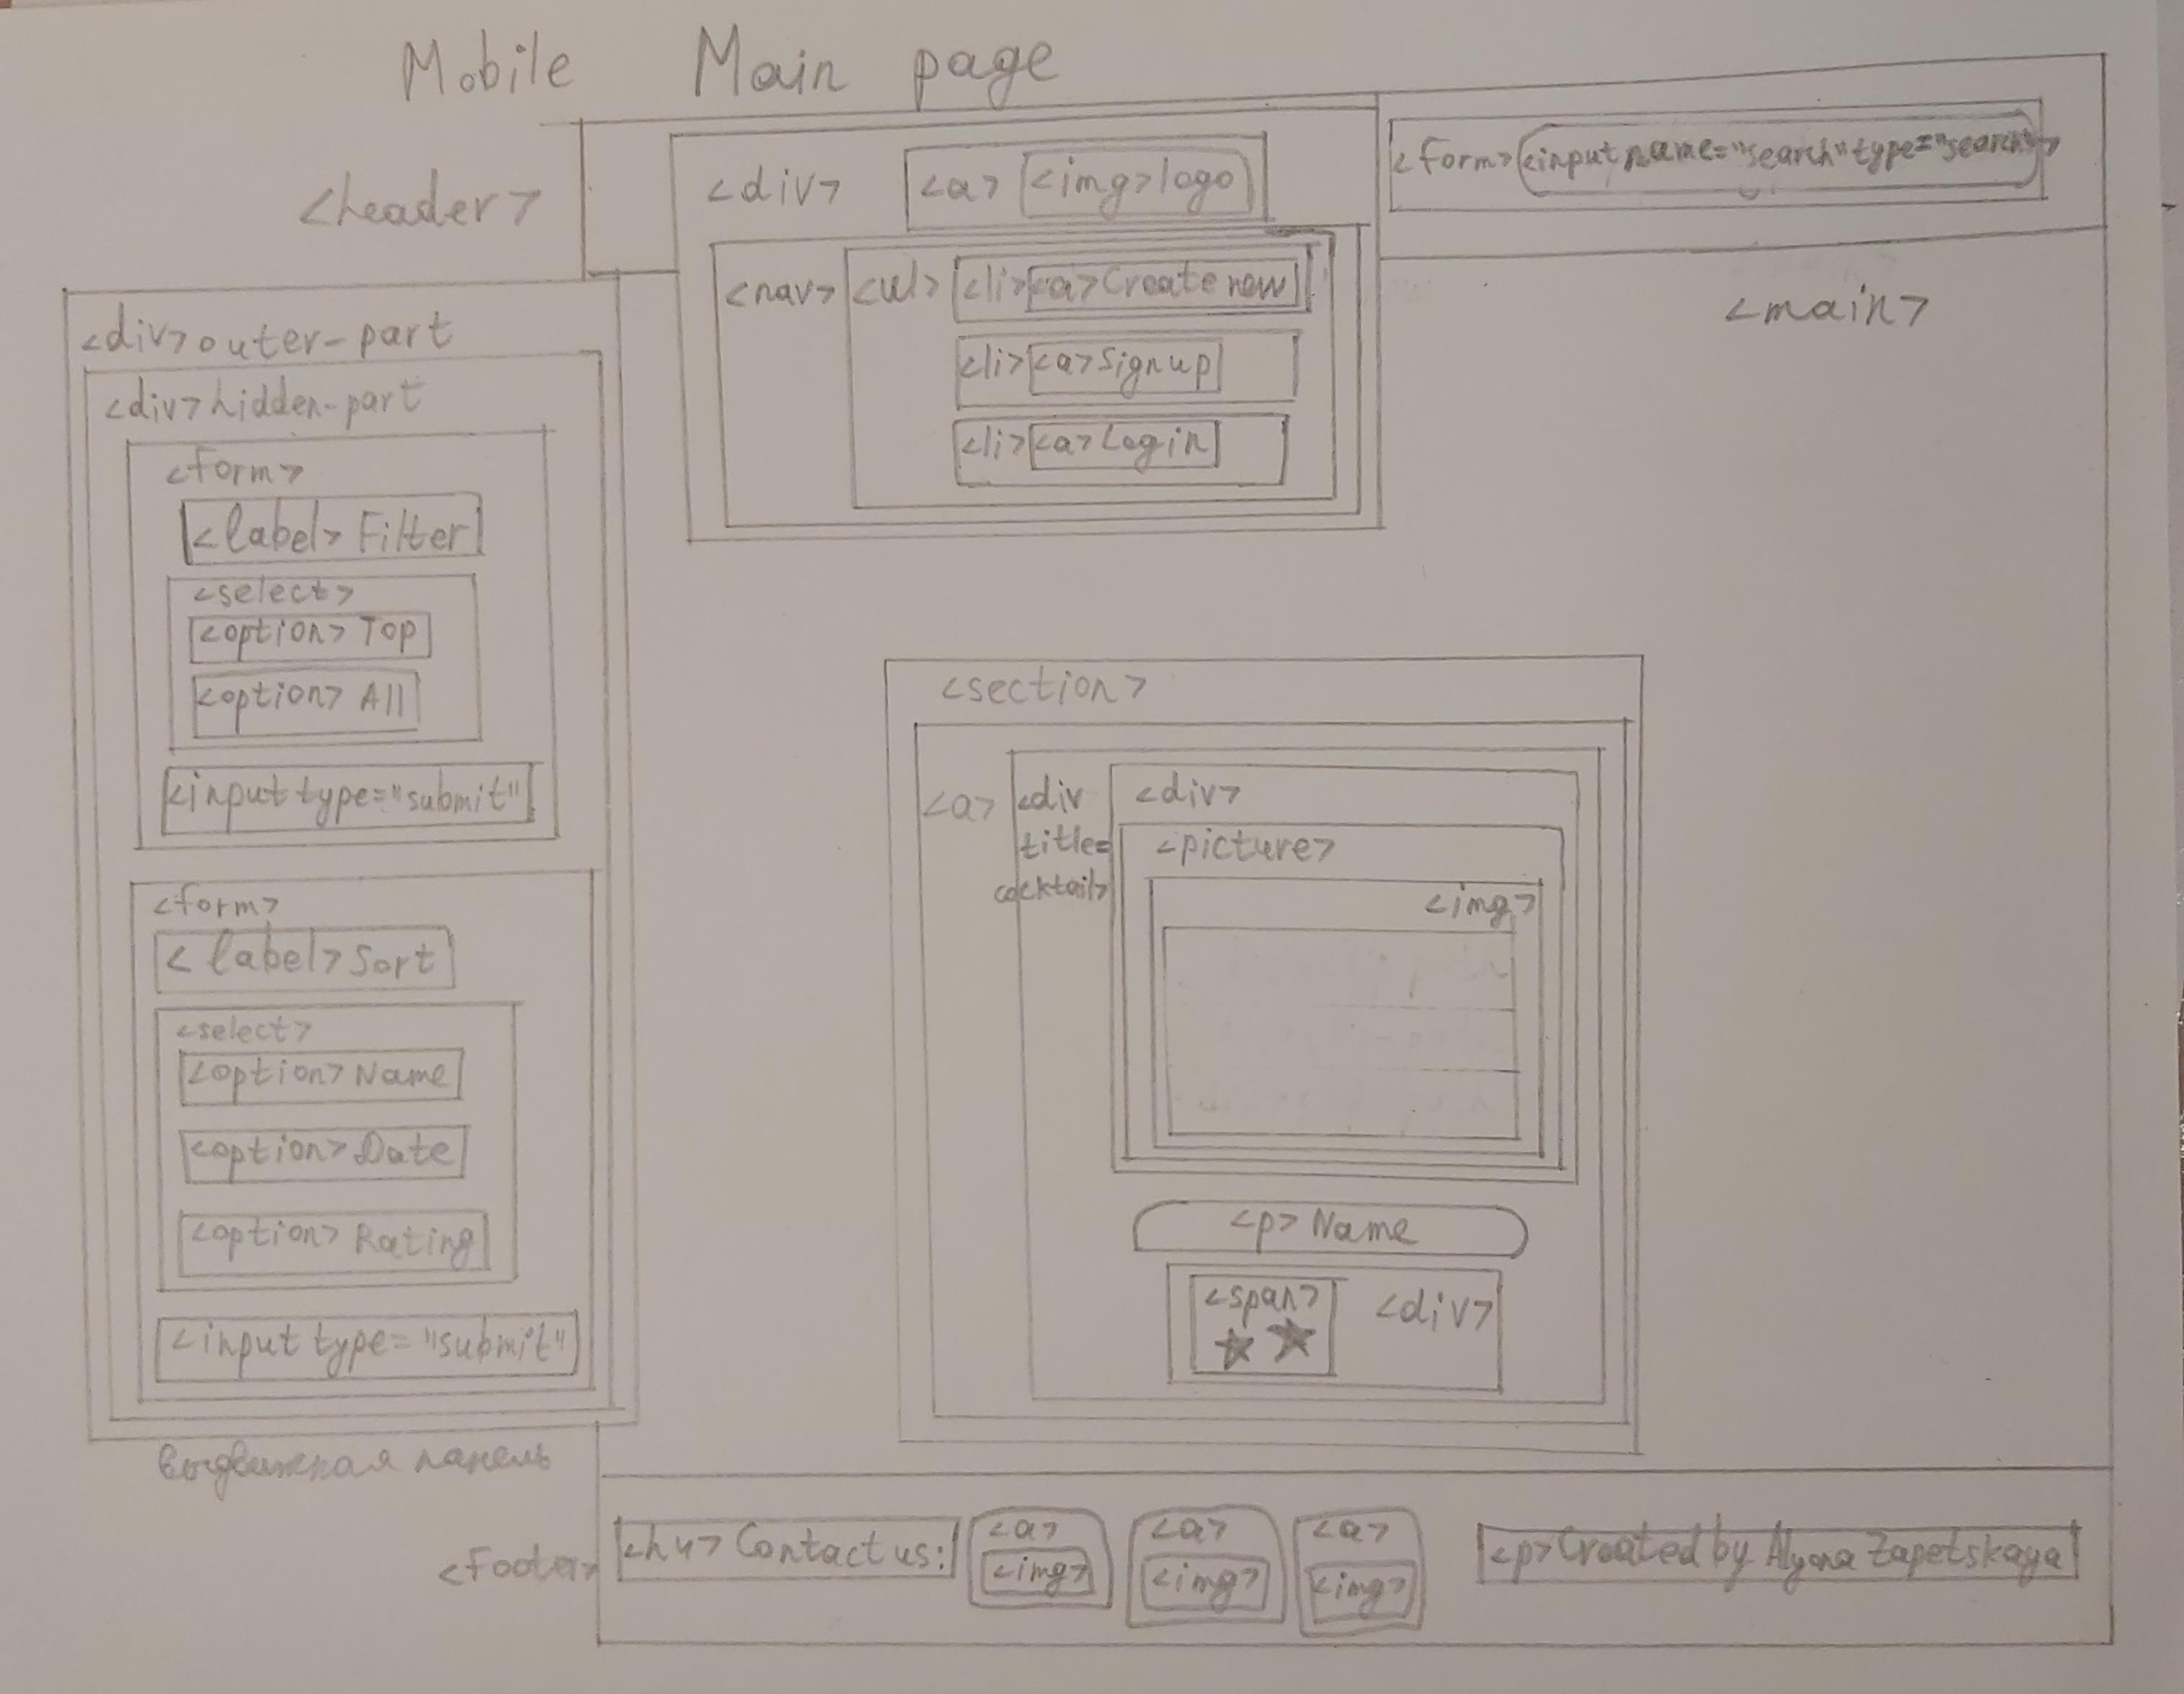 Mobile Main page
<header>
<div> <a> <img> logo
<form> <input name="search" type="search">
<nav> <ul> <li> <a> Create new
<li> <a> Sign up
<li> <a> Log in
<main>
<div> outer-part
<div> hidden-part
<form>
<label> Filter
<select>
<option> Top
<option> All
<input type="submit"
<form>
<label> Sort
<select>
<option> Name
<option> Date
<option> Rating
<input type="submit"
выдвижная панель
<section>
<a> <div
title=
cocktail>
<div>
<picture>
<img>
<p> Name
<span> <div>
★ ★
<footer>
<h4> Contact us:
<a>
<img>
<a>
<img>
<a>
<img>
<p> Created by Alyona Zapetskaya